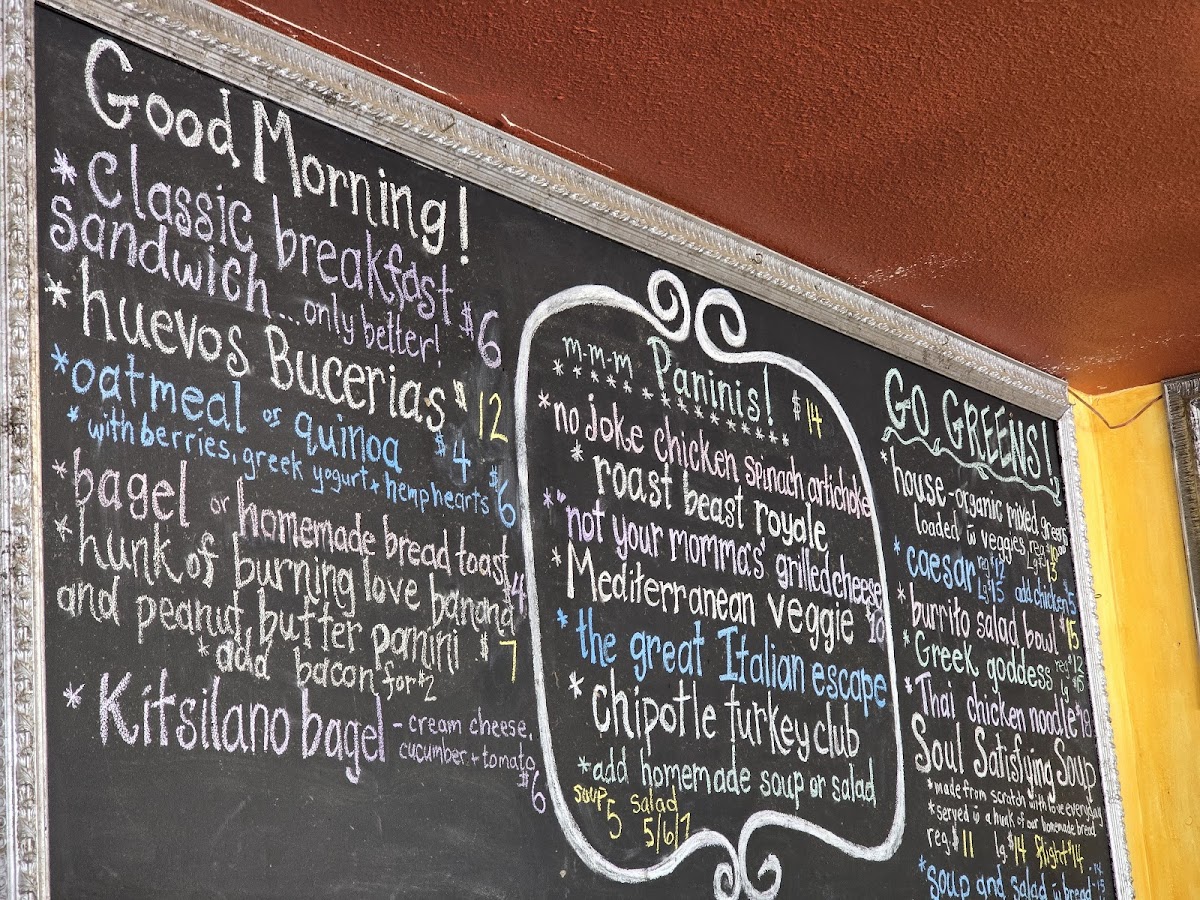 Good Morning!
* Classic breakfast
sandwich... only better! $6
* huevos Bucerias $12
* oatmeal or quinoa $4
* with berries, greek yogurt + hemphearts $6
* bagel or homemade bread toast $4
* hunk of burning love banana
and peanut butter panini $7
* add bacon for $2
* Kitsilano bagel - cream cheese,
cucumber + tomato
$6
m-m-m Paninis! $14
* no joke chicken spinach artichoke
* roast beast royale
* "not your momma's" grilled cheese
* Mediterranean veggie 10
* the great Italian escape
* chipotle turkey club
* add homemade soup or salad
soup salad
5 5/6/7
GO GREENS!
* house - organic mixed greens
loaded w veggies reg $10 Lg $13
* caesar reg $12 Lg $15 add chicken $5
* burrito salad bowl $15
* Greek goddess reg $12 Lg $15
* Thai chicken noodle $18
Soul Satisfying Soup
* made from scratch with love everyday
* served w a hunk of our homemade bread
reg. $11 lg $14 flight $14
* soup and salad w bread